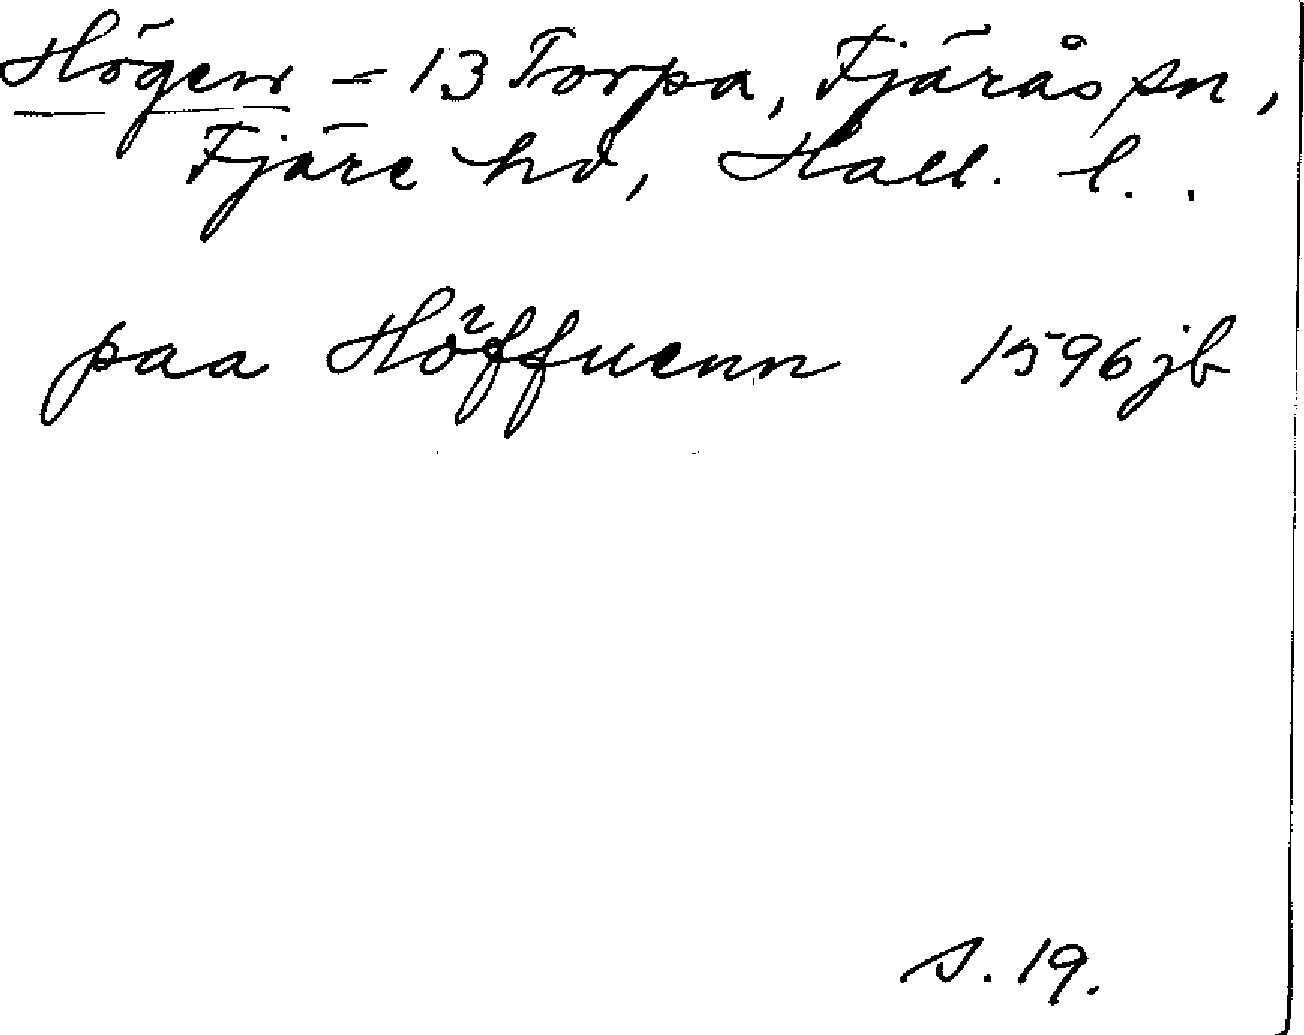 Högen = 13 Torpa, Fjärås sn,
Fjäre hd, Hall. l..
paa Höffuenn 1596 jb
s. 19.